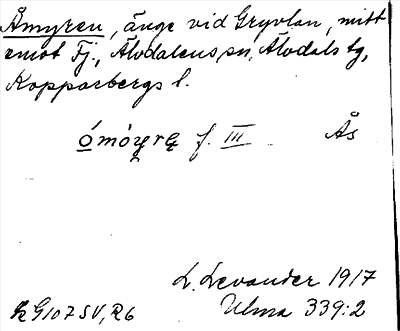 Åmyren, änge vid Gryvlan, mitt
emot Fj., Älvdalens sn, Älvdals tg,
Kopparbergs l.
f. III Ås
L. Levander 1917
Ulma 339:2